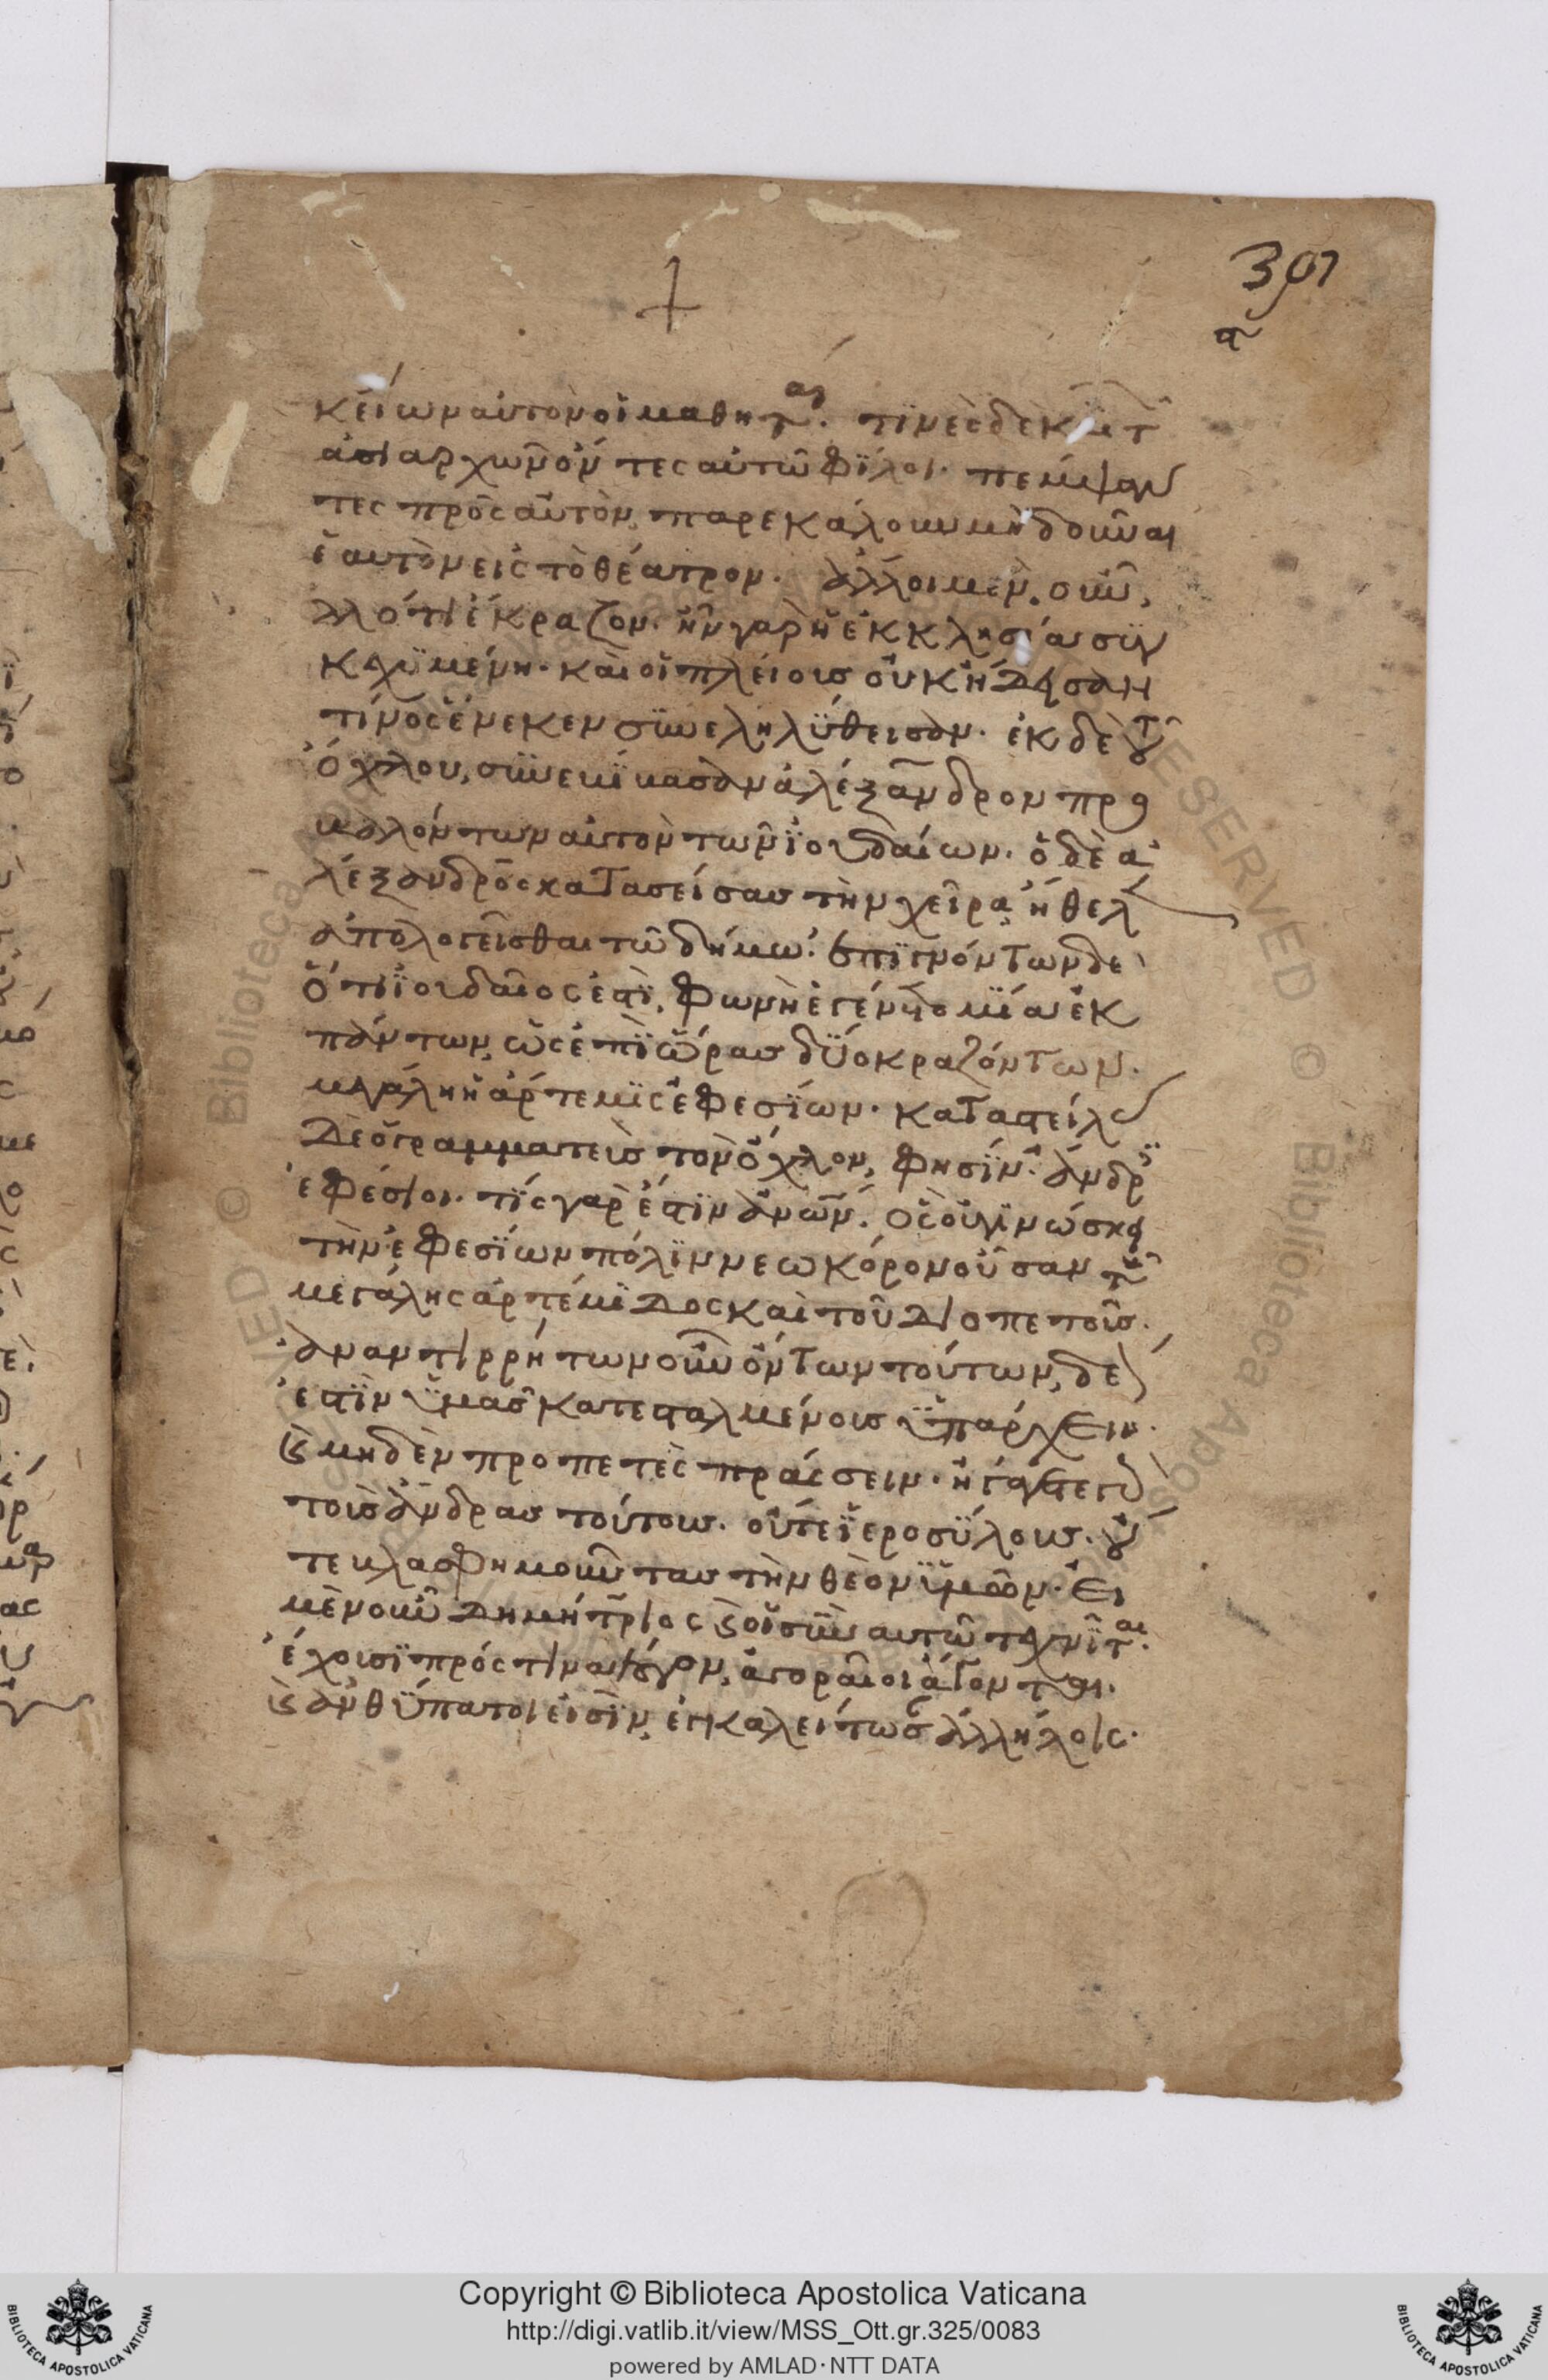 391
α
κείων αὐτὸν οἱ μαθητ(αὶ). τϊνὲς δὲ κ(αὶ) τ(ῶν)
ἀσιαρχῶν ὄντες αὐτῶ φΐλοι. πέμψαν
τες πρὸς αὐτὸν, παρεκάλουν μὴ δοῦναι
ἑαυτὸν εἰς τὸ θέατρον. ἄλλοι μὲν οὖν,
ἄλλό τι ἔκραζον. ἦν γὰρ ἡ ἐκκλησία συγ
κεχϋμένη. καὶ οἱ πλείους οὐκ ἤδησαν
τίνος ἕνεκεν συνεληλΰθεισαν. ἐκ δὲ τοῦ
ὄχλου, συνεβΐβασαν ἀλέξανδρον προ
βαλόντων αὐτὸν τῶν ϊουδαίων. ὁ δὲ ἀ
λέξανδρος κατασείσας τὴν χεῖρα, ἤθελ
ἀπολογεῖσθαι τῶ δήμω. ἐπϊγνόντων δὲ
ὅτι ϊουδαῖος ἐστϊ, φωνὴ ἐγένετο μΐα ἐκ
πάντων, ὡς ἐπϊ ὥρας δΰο κραζόντων.
μεγάλη ἡ ἄρτεμϊς ἐφεσΐων. καταστείλας
δὲ ὁ γραμματεὺς τὸν ὄχλον, φησΐν. ἄνδρ
ἐφέσιοι. τΐς γάρ ἐστϊν ἀνων. ὃς οὐ γϊνώσκει
τὴν ἐφεσΐων πόλϊν νεωκόρον οὖσαν τῆς
μεγάλης ἀρτέμϊδος καὶ τοῦ διοπετοῦς.
ἀναντιρρήτων οὖν ὄντων τούτων, δέ
ἐστϊν ϋμᾶς κατεσταλμένους ϋπάρχειν.
ϗ μηδὲν προπετὲς πράσσειν. ἠγάγετε γ(ὰρ)
τοὺς ἄνδρας τούτους. οὔτε ϊεροσΰλους. οὔ
τε βλασφημοῦντας τὴν θεὸν ϋμῶν. Εἰ
μὲν οὖν δημήτριος ϗ οἱ σὺν αὐτῶ τεχνῖται.
ἔχουσϊ πρός τινα λόγον, ἀγοραῖοι ἄγονται.
ϗ ἀνθΰπατοι εἰσϊν, ἐγκαλείτωσ ἀλλήλοις.
Copyright © Biblioteca Apostolica Vaticana
http://digi.vatlib.it/view/MSS_Ott.gr.325/0083
powered by AMLAD·NTT DATA